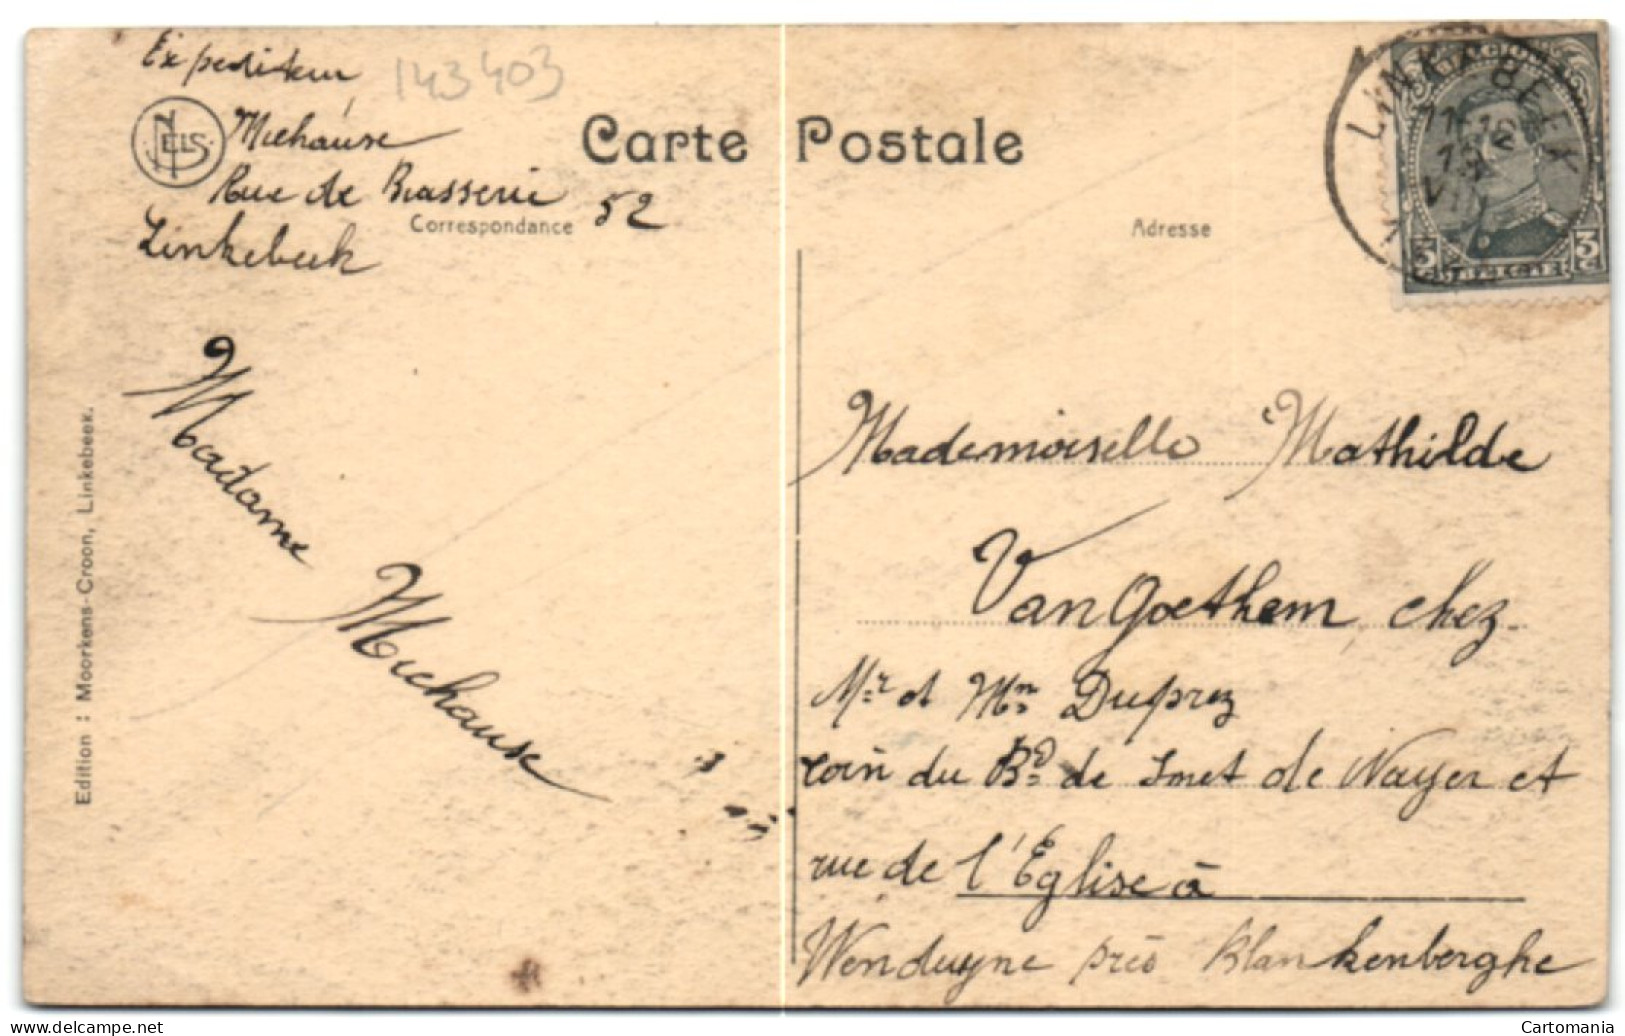 Expediteur
143403
NELS
Michause
Rue de Brasserie 52
Linkebeek
Carte Postale
Correspondance
Adresse
LINKEBEEK
3 3
Madame
Michause
Mademoiselle Mathilde
Van Goethem chez
Mr et Mm Duprez
coin du Bd de Smet de Nayer et
rue de l'Eglise à
Wenduyne près Blankenberghe
Edition : Moorkens-Croon, Linkebeek.
www.delcampe.net
Cartomania